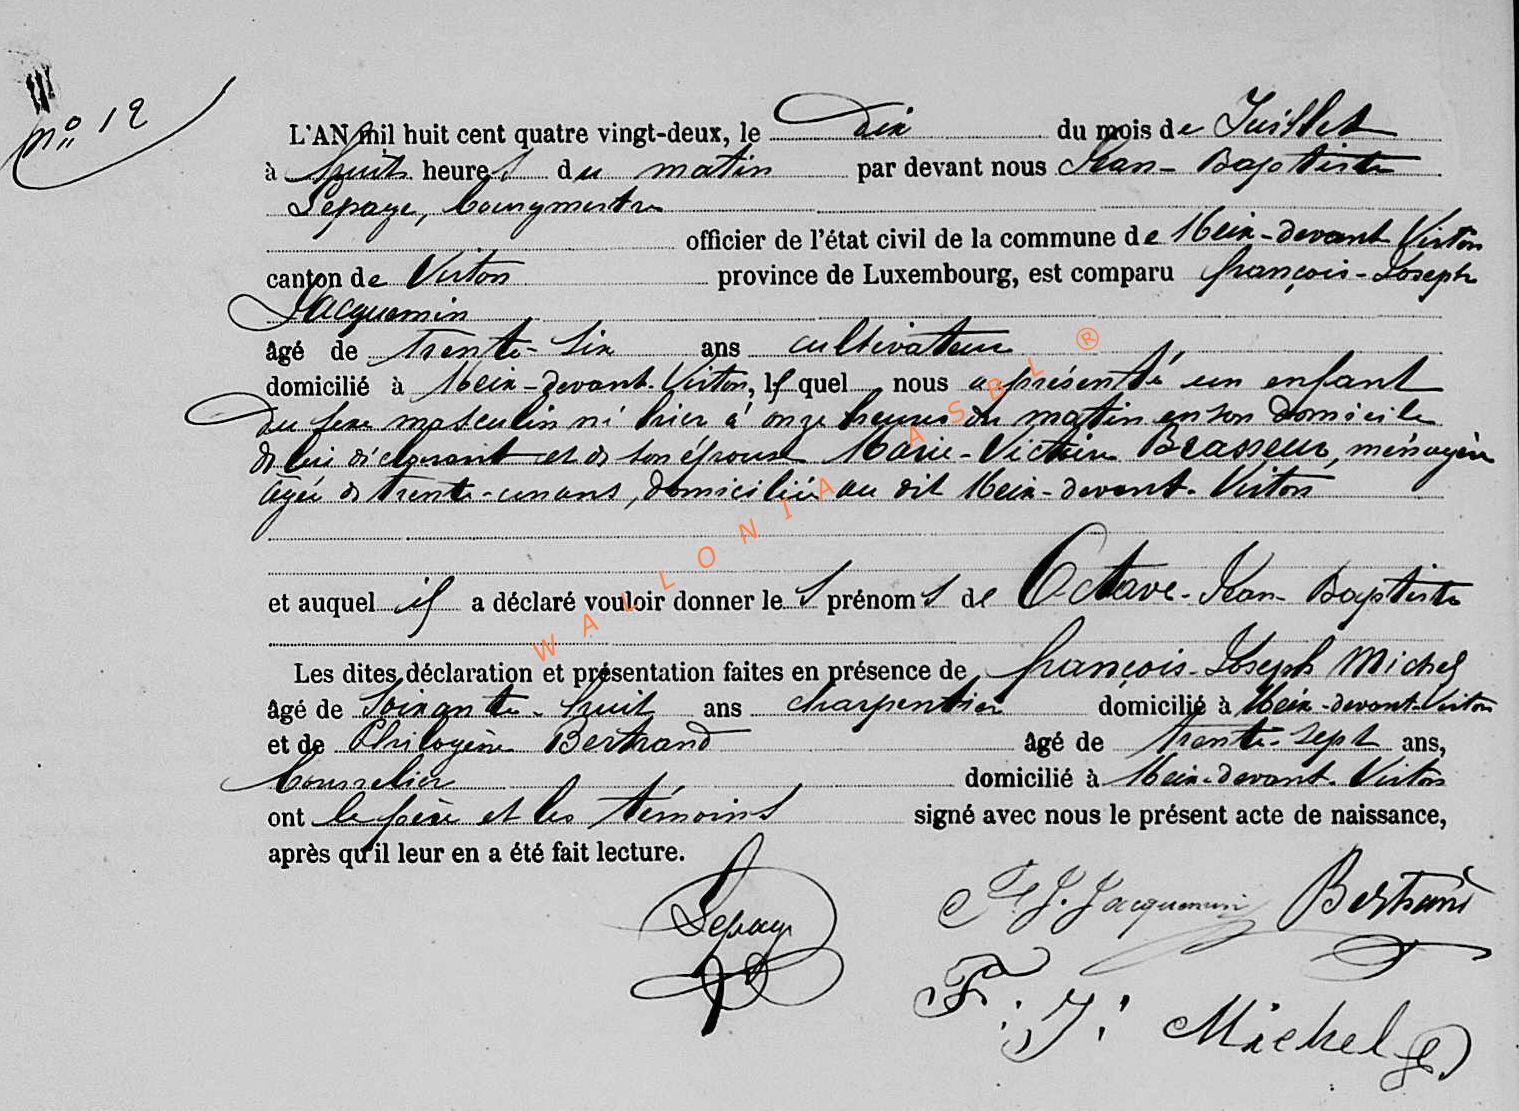 no 12
L'AN mil huit cent quatre vingt-deux, le dix du mois de Juillet
à huit heures du matin par devant nous Jean-Baptiste
Lepage, bourgmestre
officier de l'état civil de la commune de Meix-devant Virton
canton de Virton province de Luxembourg, est comparu françois-Joseph
Jacquemin
âgé de trente-six ans cultivateur
domicilié à Meix-devant-Virton, le quel nous a présenté un enfant
du sexe masculin né hier à onze heures du matin en son domicile
de lui déclarant et de son épouse Marie-Victoire Brasseur, ménagère
agée de trente-un ans, domiciliée au dit Meix-devant-Virton
et auquel il a déclaré vouloir donner les prénoms de Octave-Jean-Baptiste
Les dites déclaration et présentation faites en présence de françois-Joseph Michel
âgé de soixante-huit ans charpentier domicilié à Meix-devant-Virton
et de Philogène Bertrand âgé de trente-sept ans,
bourrelier domicilié à Meix-devant-Virton
ont le père et les témoins signé avec nous le présent acte de naissance,
après qu'il leur en a été fait lecture.
Lepage F. J. Jacquemin Bertrand
F. J. Michel
WALLONIA ASBL ®